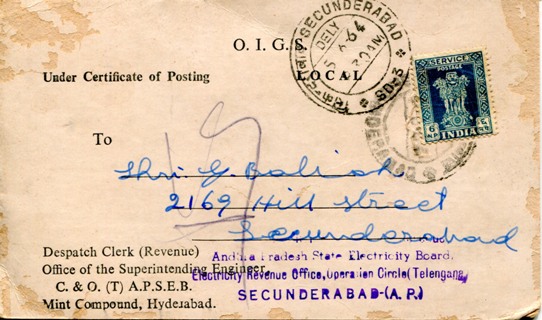 O. I. G. S.
Under Certificate of Posting
LOCAL
SECUNDERABAD
DELY
64
30AM
SO-3
SERVICE
POSTAGE
INDIA
To
Shri G. Baliah
2169 Hill Street
Secunderabad
Despatch Clerk (Revenue)
Office of the Superintending Engineer,
C. & O. (T) A.P.S.E.B.
Mint Compound, Hyderabad.
Andhra Pradesh State Electricity Board.
Electricity Revenue Office, Operation Circle(Telengana)
SECUNDERABAD-(A.P.)